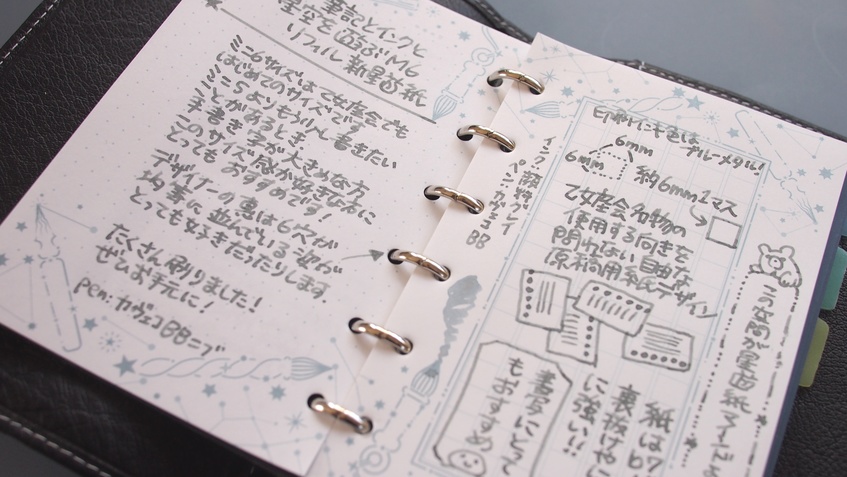 筆記とインクと
星空を函ぶM6
リフィル 新星図紙
ミニ6サイズは乙女座会でも
はじめてのサイズです
ミニ5よりもメリハリ書きたい
ことがあるとき、
手書き文字が大きめな方
このサイズ感が好きな方に
とってもおすすめです!
デザイナーの恵は6穴が
均等に並んでいる姿が
とっても好きだったりします。
たくさん刷りました!
ぜひお手元に!
pen:カヴェコBBニブ
インク 顔料グレイ
ペン カヴェコBB
印刷インキは、ブルーメタル!
6mm
6mm
約6mm1マス
乙女座会名物の
使用する向きを
問わない自由な
原稿用紙デザイン
紙は
裏抜けや
に強い!!
書写にとって
もおすすめ